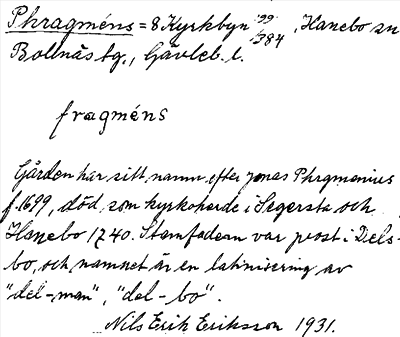 Phragméns = 8 Kyrkbyn 99/384, Hanebo sn
Bollnäs tg., Gävleb. l.
fragméns
Gården har sitt namn efter Jonas Phragmenius
f. 1699, död som kyrkoherde i Segersta och
Hanebo 1740. Stamfadern var prost i Dels-
bo, och namnet är en latinisering av
"del-man", "del-bo".
Nils Erik Eriksson 1931.